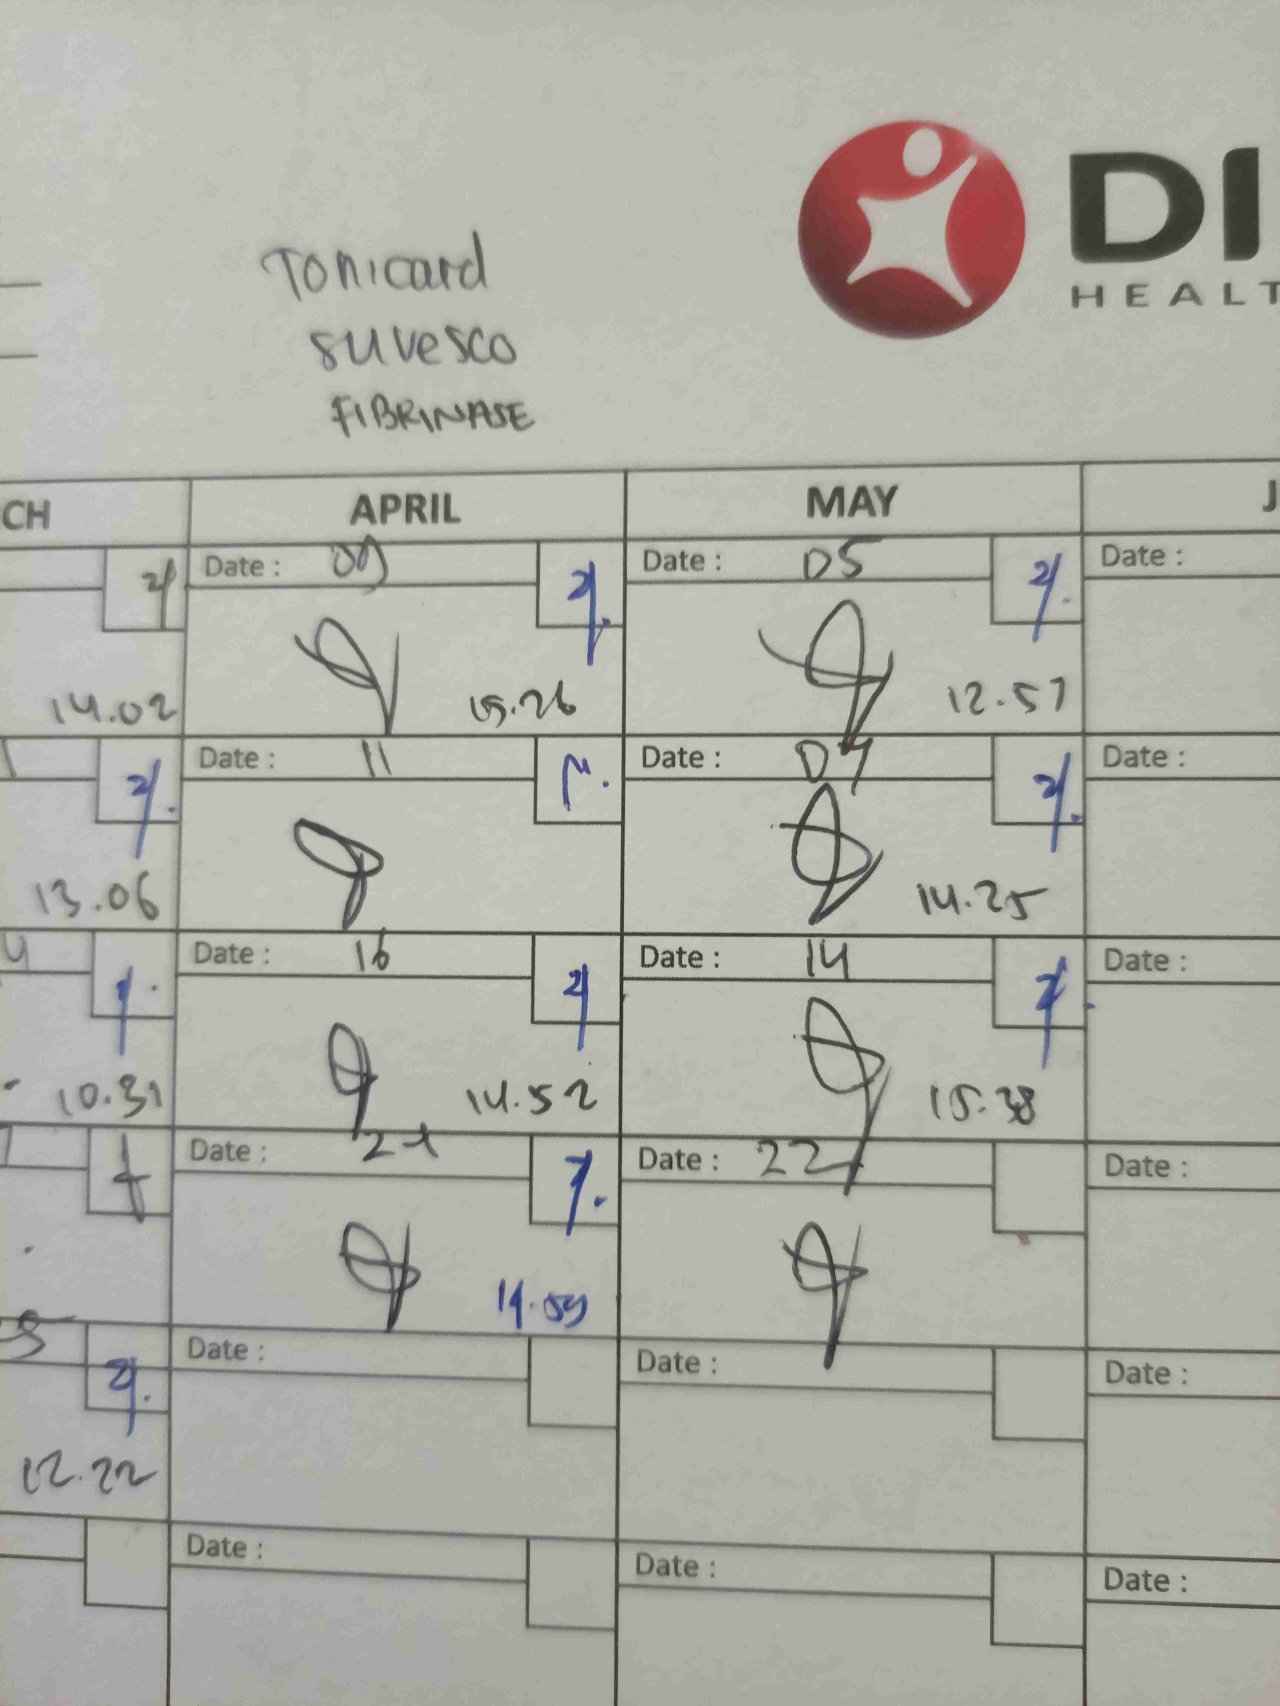 DI
HEALT
Tonicard
suvesco
FIBRINASE
CH APRIL MAY J
Date : 09 Date : 05 Date :
14.02 15.26 12.57
Date : 11 Date : 07 Date :
13.06 14.25
Date : 16 Date : 14 Date :
10.31 14.52 15.38
Date : 21 Date : 22 Date :
14.59
Date : Date : Date :
12.22
Date : Date : Date :